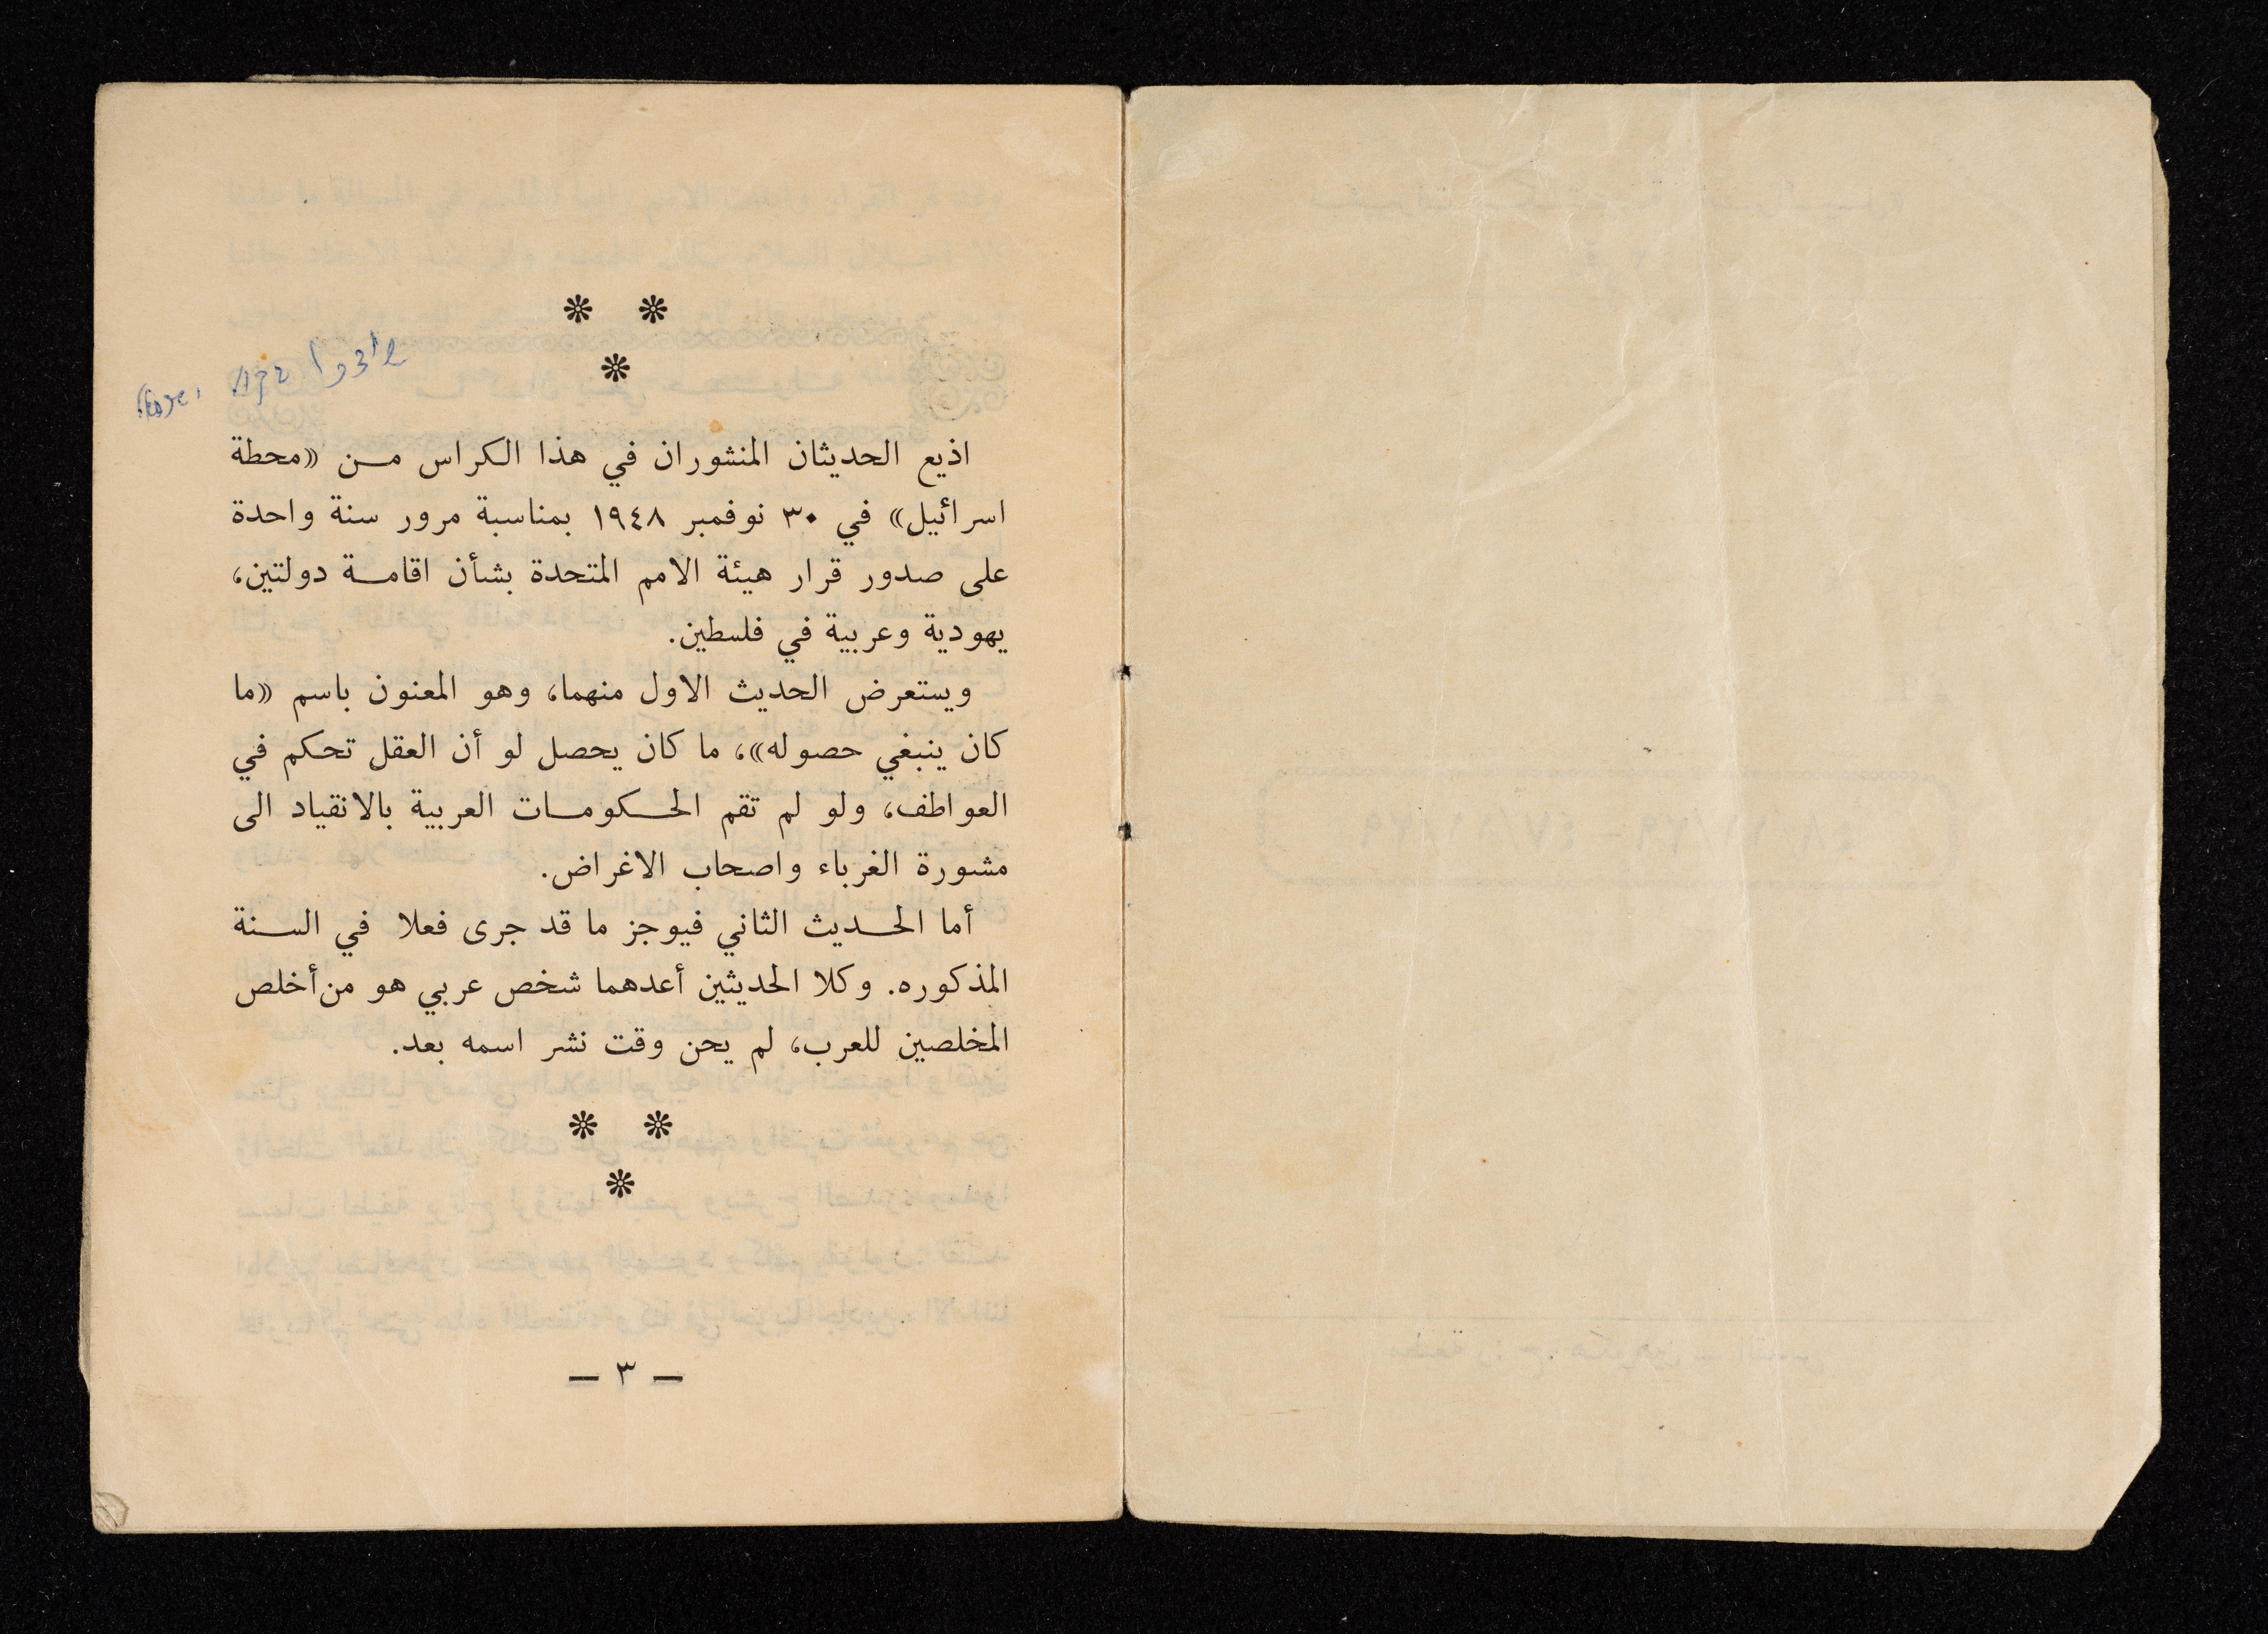 اذيع الحديثان المنشوران في هذا الكراس من «محطة
اسرائيل» في ٣٠ نوفمبر ١٩٤٨ بمناسبة مرور سنة واحدة
على صدور قرار هيئة الامم المتحدة بشأن اقامة دولتين،
يهودية وعربية في فلسطين.
ويستعرض الحديث الاول منهما، وهو المعنون باسم «ما
كان ينبغي حصوله»، ما كان يحصل لو أن العقل تحكم في
العواطف، ولو لم تقم الحكومات العربية بالانقياد الى
مشورة الغرباء واصحاب الاغراض.
أما الحديث الثاني فيوجز ما قد جرى فعلا في السنة
المذكوره. وكلا الحديثين أعدهما شخص عربي هو من أخلص
المخلصين للعرب، لم يحن وقت نشر اسمه بعد.
— ٣ —